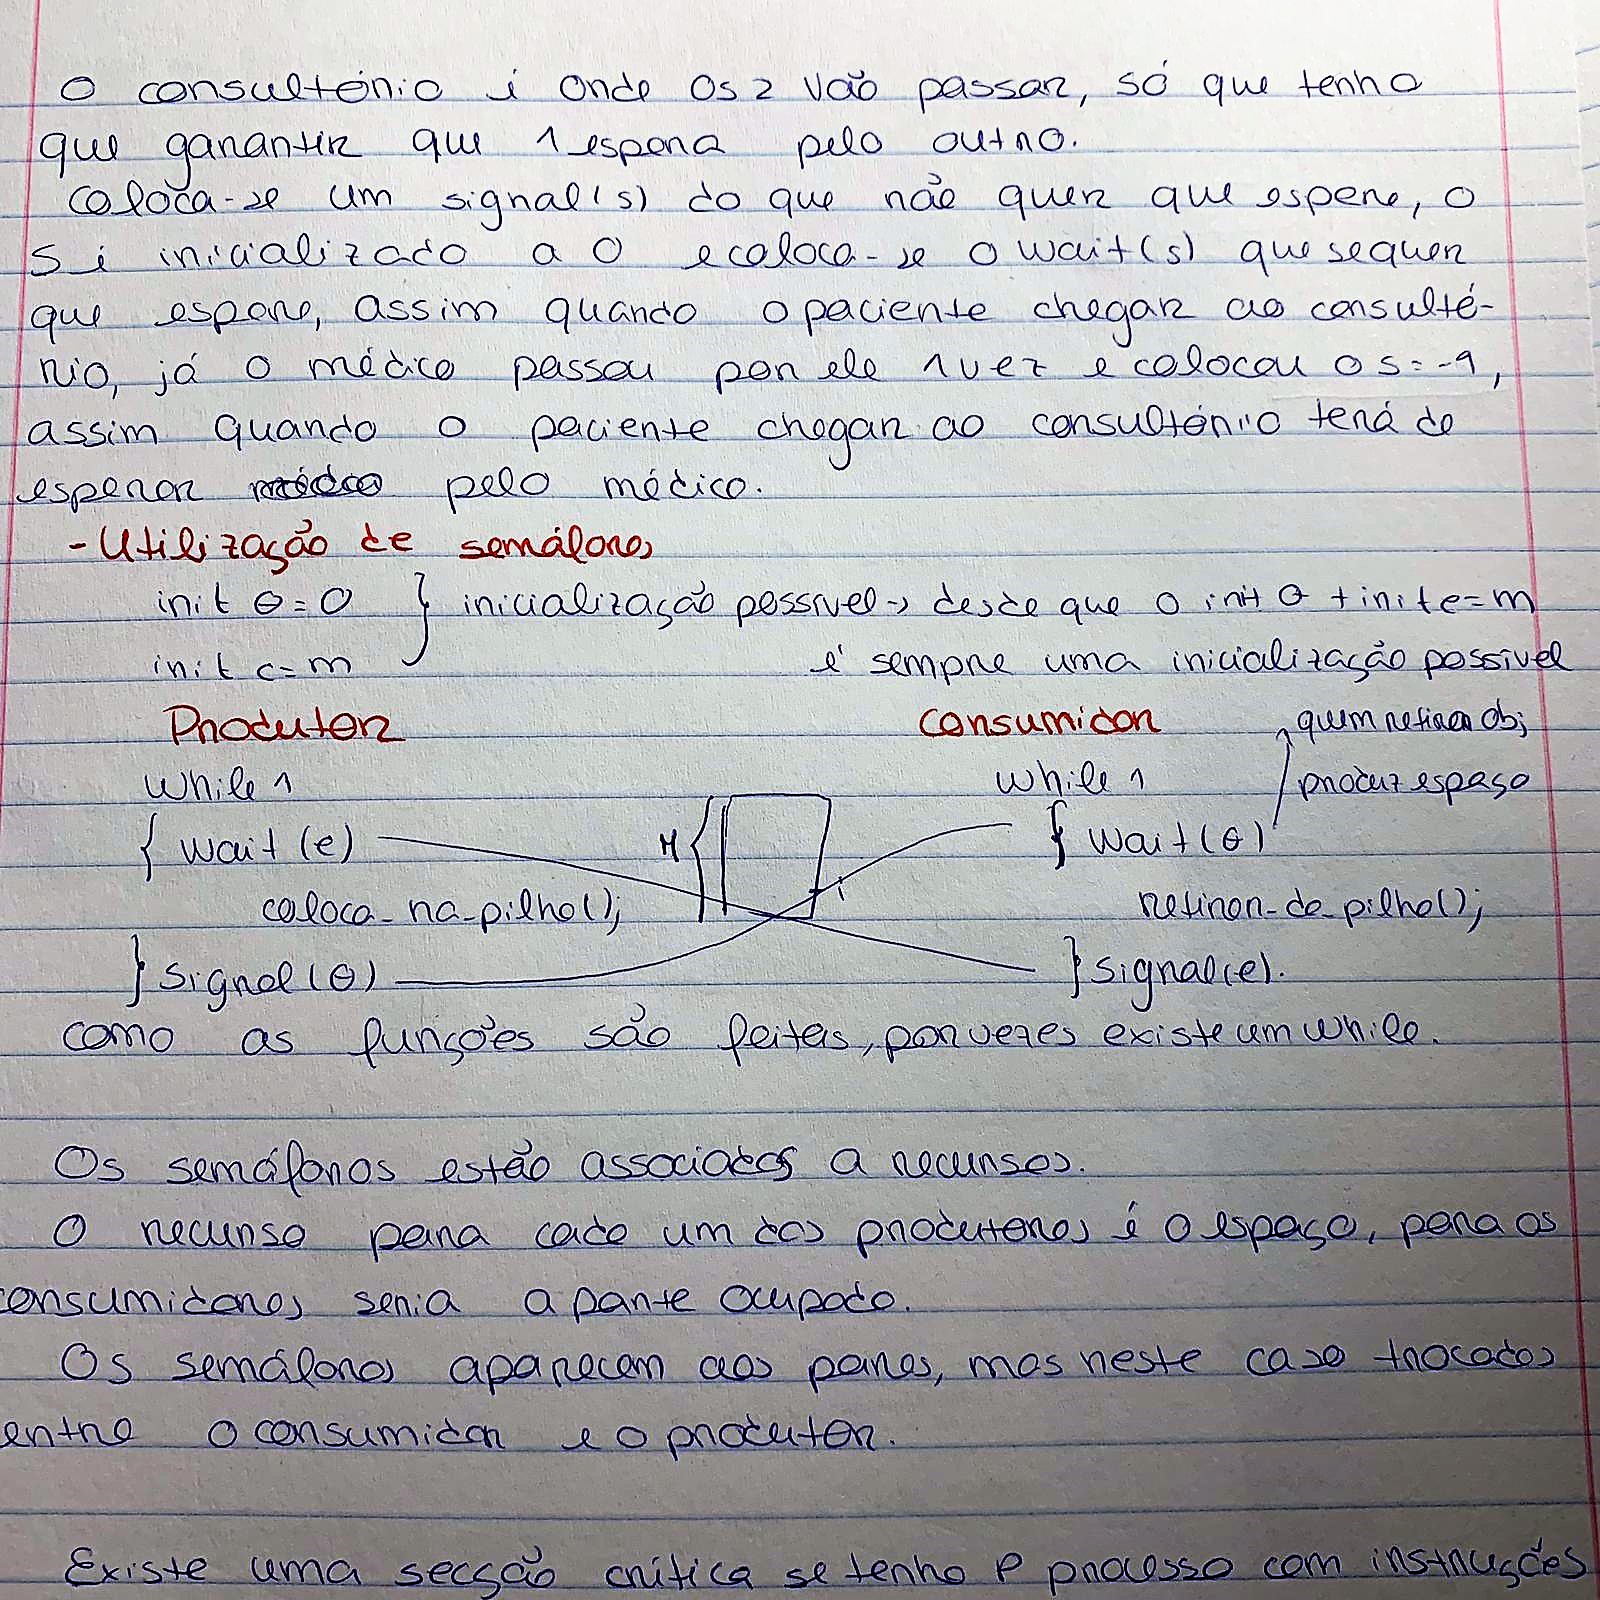 O consultório é onde os 2 vão passar, só que tenho
que garantir que 1 espera pelo outro.
Coloca-se um signal(s) do que não quer que espere, o
s é inicializado a 0 e coloca-se o wait(s) que se quer
que espere, assim quando o paciente chegar ao consultó-
rio, já o médico passou por ele 1 vez e colocou o s=-1,
assim quando o paciente chegar ao consultório terá de
esperar pelo médico.
- Utilização de semáforos
init θ=0 } inicialização possível → desde que o init θ + init e=m
init c=m é sempre uma inicialização possível
Produtor Consumidor quem retira obj
While 1 While 1 produz espaço
{ wait (e) M { { wait (θ)
coloca_na_pilha(); retirar_da_pilha();
} signal (θ) } signal(e).
como as funções são feitas, por vezes existe um while.
Os semáforos estão associados a recursos.
O recurso para cada um dos produtores é o espaço, para os
consumidores seria a parte ocupada.
Os semáforos aparecem aos pares, mas neste caso trocados
entre o consumidor e o produtor.
Existe uma secção crítica se tenho P processo com instruções